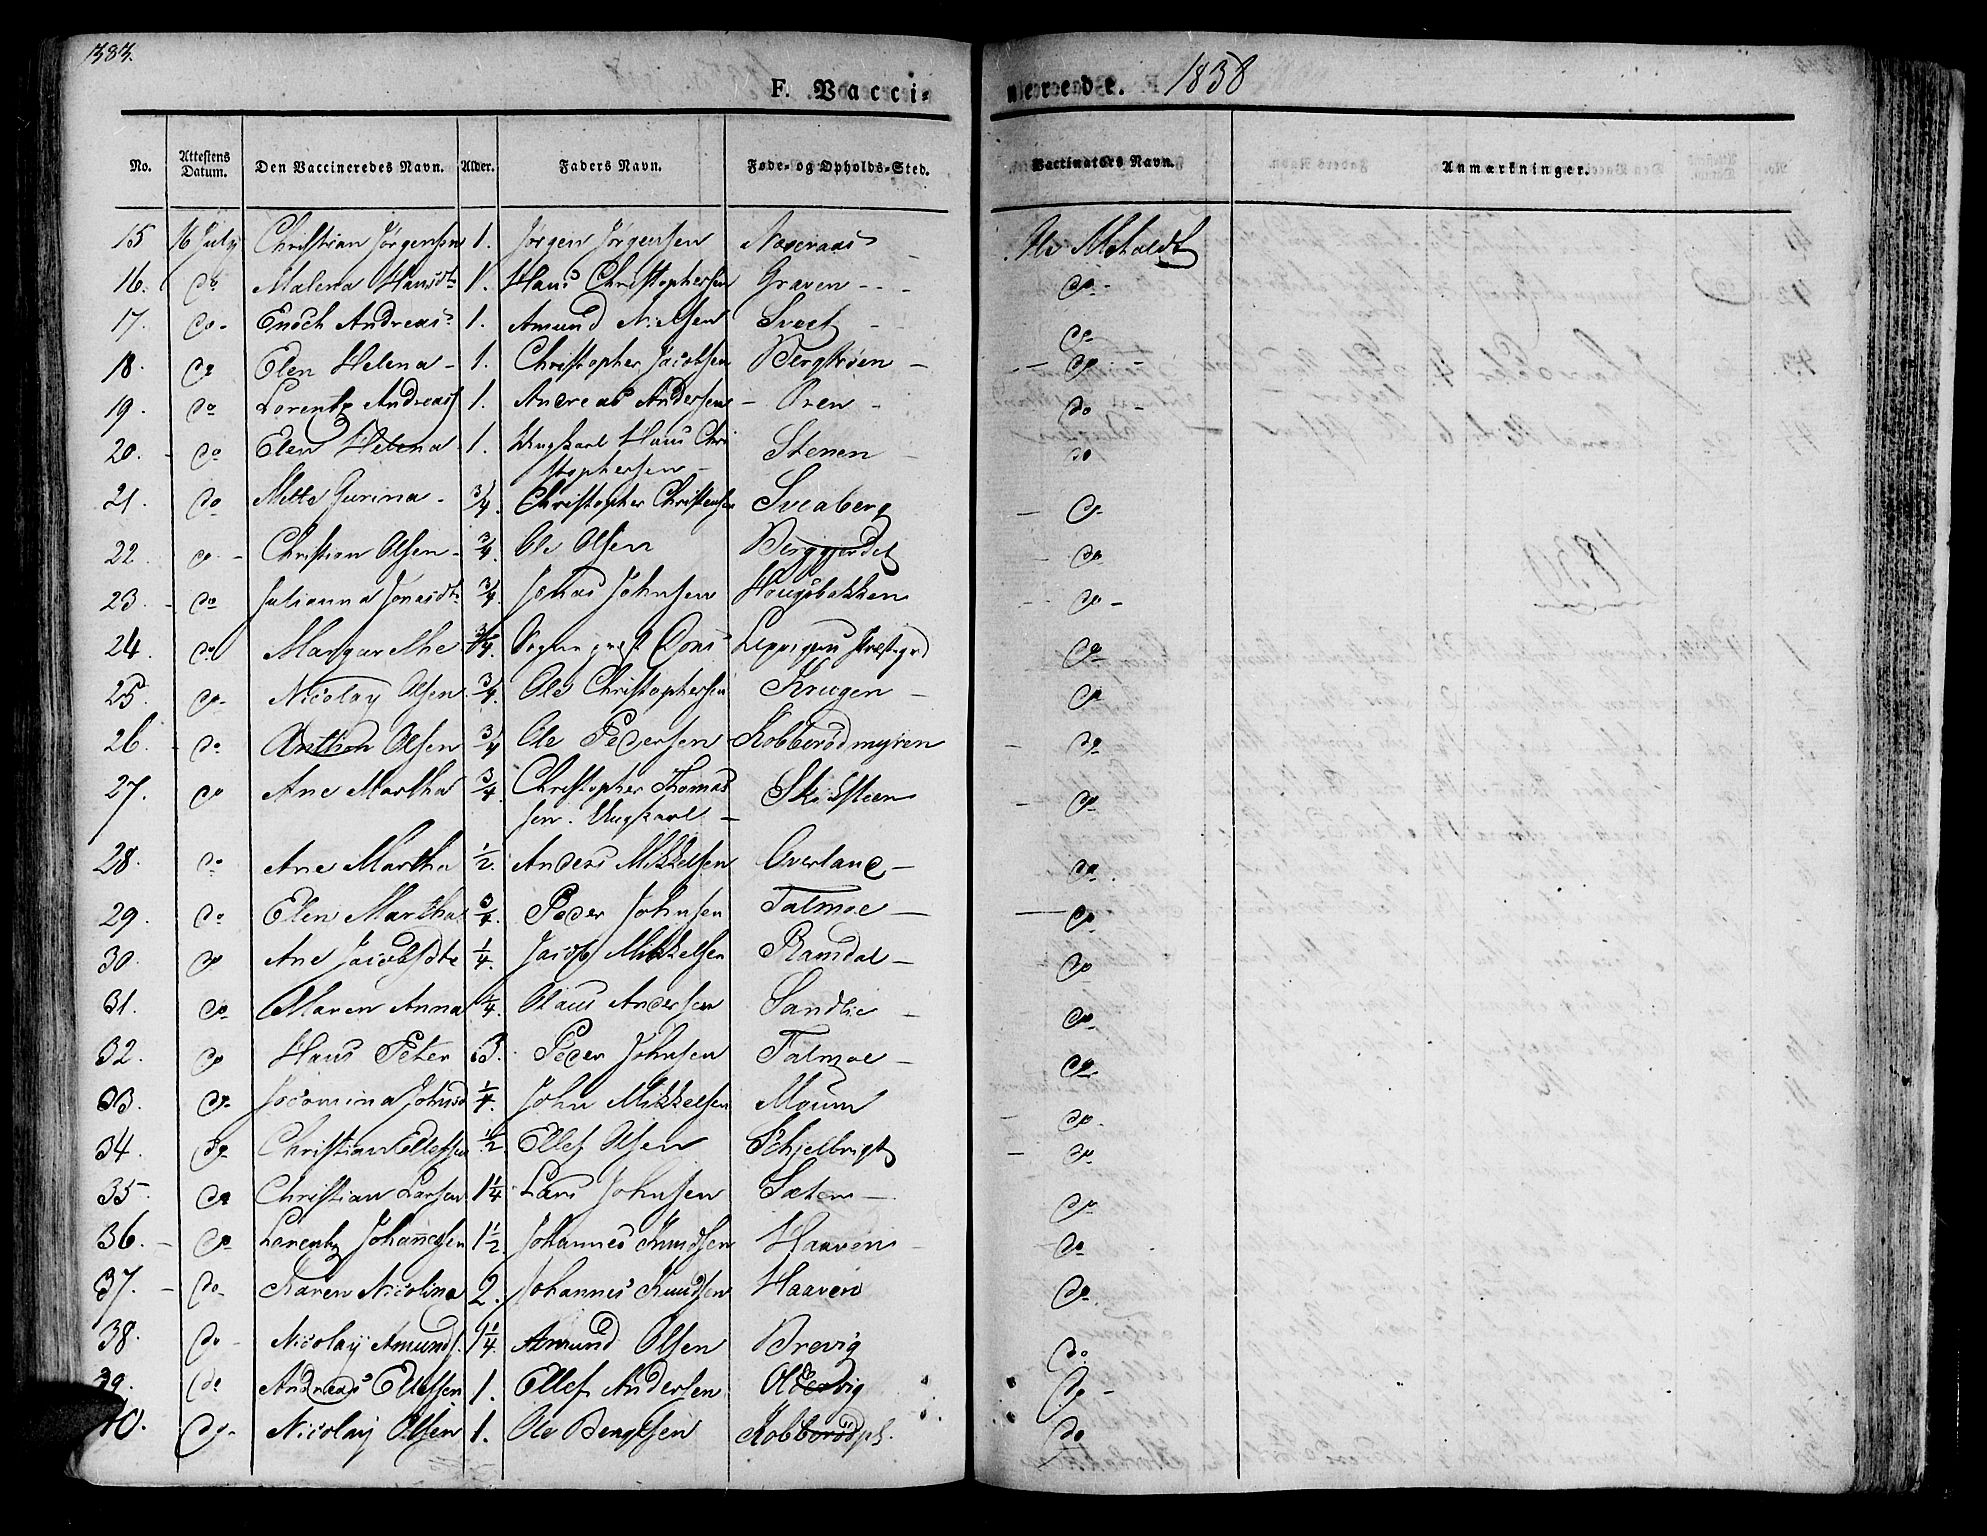 383.
F. Vacci- nerede. 1838
No. Attestens Datum. Den Vaccineredes Navn. Alder. Faders Navn. Føde- og Opholds-Sted. Vaccinateurs Navn. Anmærkninger.
15 16 July Christian Jörgensen 1. Jörgen Jörgensen
16. do Malena Hansdtr 1. Hans Christophersen Graven - - - do -
17. do - Enoch Andreas 1. Amund Nielsen do
18. do Elen Helena - 1. Christopher Jacobsen Bergkröen - - do -
19. do Lorentz Andreas 1. Andreas Andersen - Oren - do -
20. - do Elen Helena 1. Ungkarl Hans Chri Stenen - do
stophersen -
21. do Mette Gurina - 3/4 Christopher Christensen Sveaberg - do
22. do - Christian Olsen - 3/4 Ole Olsen Berggjerdet - do
23. - do Julianna Jonasdtr 3/4 Jonas Johnsen Hougsbakken - do -
24. do Margarethe 3/4 Sogneprest do
25. do - Nicolay Olsen 3/4 Ole Christophersen Krugen - do
26. - do Anthon Olsen 3/4 Ole Pedersen - Kobberödmyren - do
27. do Ane Martha 3/4 Christopher Thomas Skidsteen - do
sen. Ungkarl -
28. do Ane Martha 1/2. Anders Mikkelsen Overland - do.
29. do Elen Martha 3/4 Peder Johnsen Talmoe - - do
30. do Ane Jacobsdtr 1/4. Jacob Mikkelsen Ramdal - do
31. do Maren Anna 1/4. Olaus Andersen Sandlie - do
32. do Hans Peter 3. Peder Johnsen Talmoe - do.
33. do - Jocomina Johnsd 1/4. John Mikkelsen Moum - do.
34. do Christian Ellefsen 1/2 Ellef Olsen Schjelbrigt - do
35. do Christian Larsen 1 1/4 Lars Johnsen Sæter - do
36. - do Lorentz Johannesen 1 1/2 Johannes Knudsen Haaven - do
37. - do Karen Nicolina 2. Johannes Knudsen Haaven do
38. do - Nicolay Amunds. 1 1/4 Amund Olsen Brevig do.
39. do Andreas Ellefsen 1. Ellef Andersen Oldervig do -
40. do - Nicolay Olsen 1. Ole Bengtsen Kobberödpl. do
1839